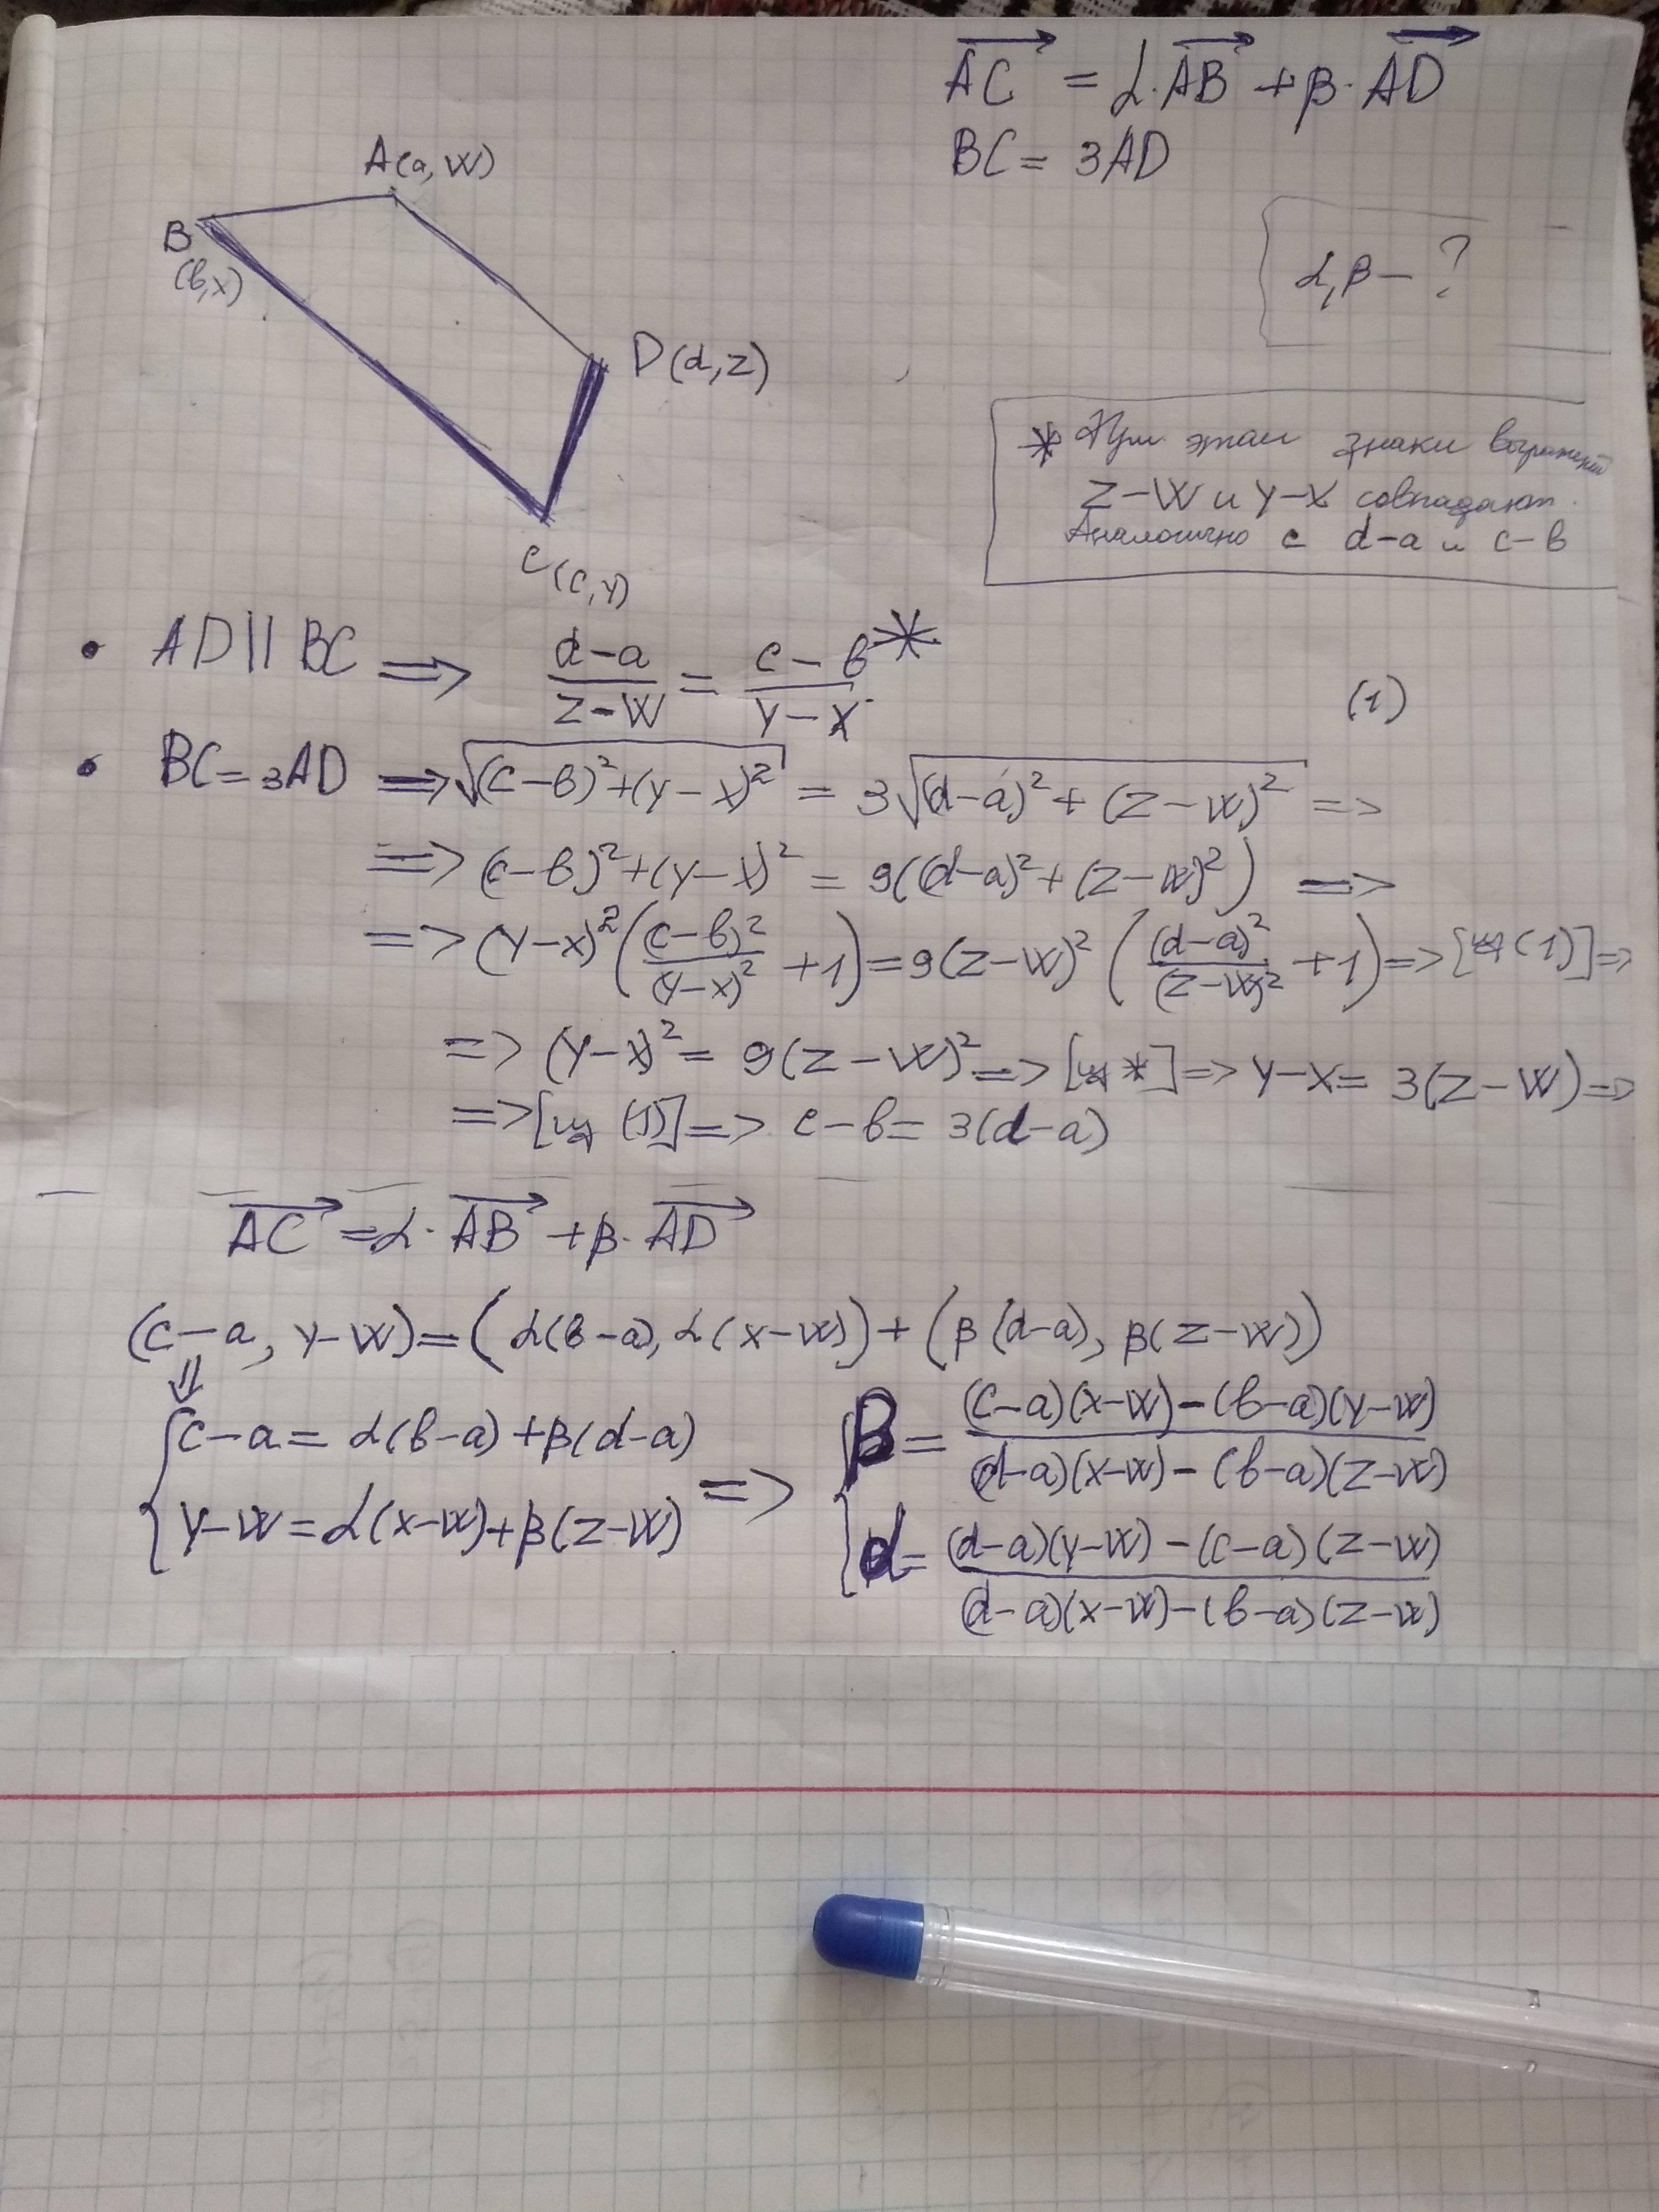 AC = α·AB + β·AD
BC = 3AD
α, β – ?
A(a, w)
B
(в, x)
D(d, z)
C (c, y)
* При этом знаки выражений
z–w и y–x совпадают.
Аналогично с d–a и c–в
• AD || BC ⟹ (d–a)/(z–w) = (c–в)/(y–x) * (1)
• BC = 3AD ⟹ √((c–в)²+(y–x)²) = 3√((d–a)²+(z–w)²) =>
=> (c–в)²+(y–x)² = 9((d–a)²+(z–w)²) =>
=> (y–x)²((c–в)²/(y–x)² +1) = 9(z–w)²((d–a)²/(z–w)² +1) => [из (1)] =>
=> (y–x)² = 9(z–w)² => [из *] => y–x = 3(z–w) =>
=> [из (1)] => c–в = 3(d–a)
AC = α·AB + β·AD
(c–a, y–w) = (α(в–a), α(x–w)) + (β(d–a), β(z–w))
⇓
{ c–a = α(в–a) + β(d–a)
y–w = α(x–w) + β(z–w)
=> { β = ((c–a)(x–w) – (в–a)(y–w)) / ((d–a)(x–w) – (в–a)(z–w))
α = ((d–a)(y–w) – (c–a)(z–w)) / ((d–a)(x–w) – (в–a)(z–w))